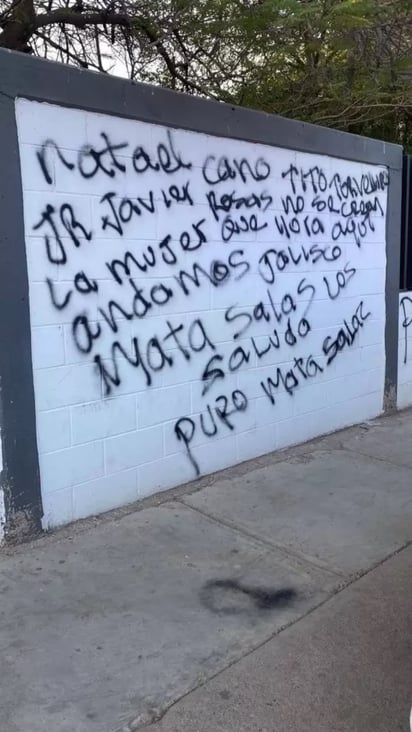 natael cano TITO
JR Javier Rosas no se crean
La mujer que yora aqui
andamos Jalisco
Mata Salas Los
Saluda
puro Mata Salas